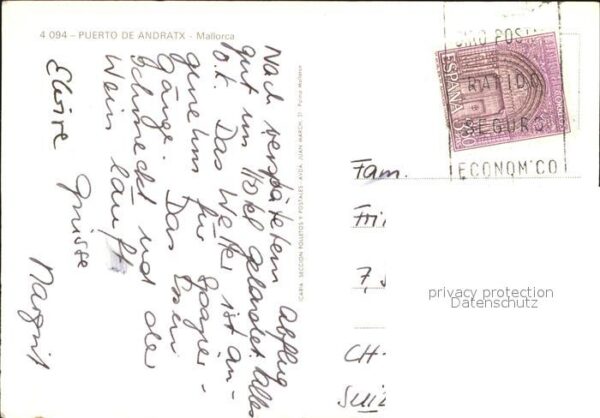 4 094 – PUERTO DE ANDRATX - Mallorca
Nach verspätetem Abflug
gut im Hotel gelandet. Alles
o.k. Das Wetter ist an-
genehm für Spazier-
gänge. Das Essen
schmeckt und der
Wein läuft
Grüsse
Margrit
ICARIA. SECCION FOLLETOS Y POSTALES - AVDA. JUAN MARCH, 21 Palma Mallorca
GIRO POSTAL
RAPIDO
SEGURO
ECONOMICO
ESPAÑA
CORREOS
Fam.
Fri
7,
CH-
privacy protection
Datenschutz